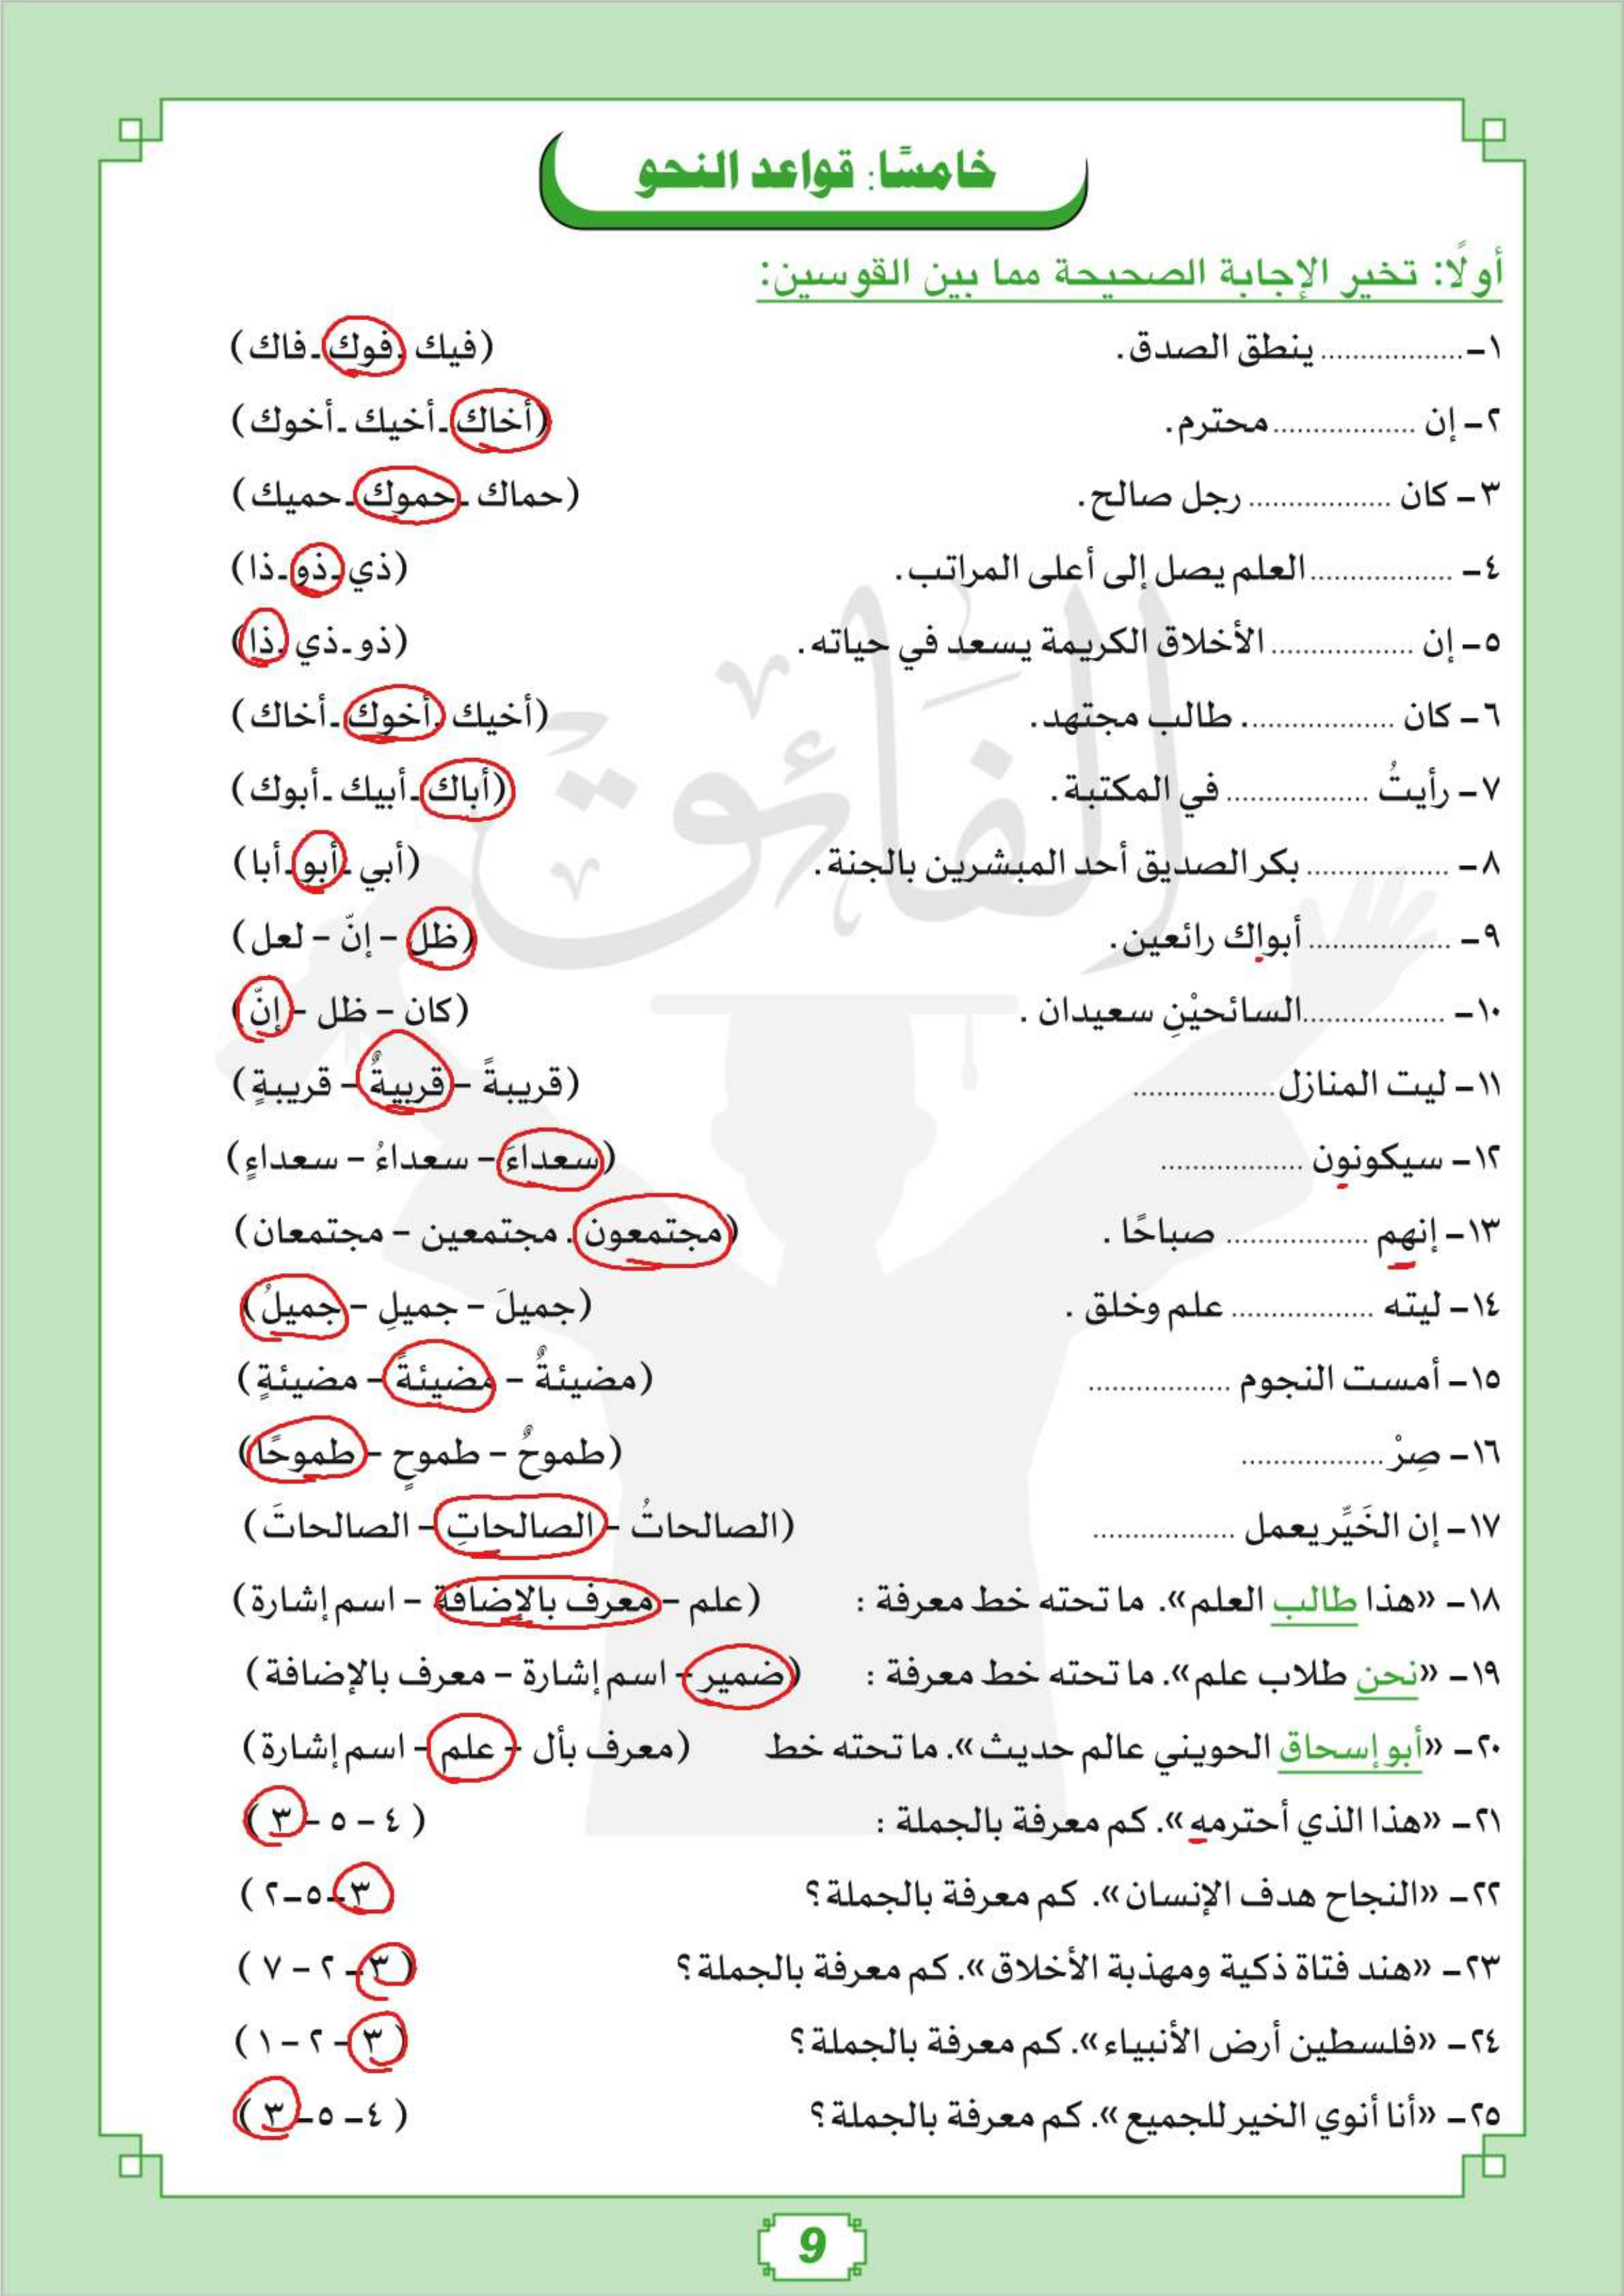 خامسًا: قواعد النحو
أولًا: تخير الإجابة الصحيحة مما بين القوسين:
١- .................. ينطق الصدق. (فيك - فوك - فاك)
٢- إن .................. محترم. (أخاك - أخيك - أخوك)
٣- كان .................. رجل صالح. (حماك - حموك - حميك)
٤- .................. العلم يصل إلى أعلى المراتب. (ذي - ذو - ذا)
٥- إن .................. الأخلاق الكريمة يسعد في حياته. (ذو - ذي - ذا)
٦- كان .................. طالب مجتهد. (أخيك - أخوك - أخاك)
٧- رأيتُ .................. في المكتبة. (أباك - أبيك - أبوك)
٨- .................. بكر الصديق أحد المبشرين بالجنة. (أبي - أبو - أبا)
٩- .................. أبواك رائعين. (ظل - إنّ - لعل)
١٠- .................. السائحيْنِ سعيدان . (كان - ظل - إنّ)
١١- ليت المنازل .................. (قريبةً - قريبةٌ - قريبةٍ)
١٢- سيكونون .................. (سعداءَ - سعداءُ - سعداءٍ)
١٣- إنهم .................. صباحًا . (مجتمعون - مجتمعين - مجتمعان)
١٤- ليته .................. علم وخلق . (جميلَ - جميلِ - جميلُ)
١٥- أمست النجوم .................. (مضيئةٌ - مضيئةً - مضيئةٍ)
١٦- صِرْ .................. (طموحٌ - طموحٍ - طموحًا)
١٧- إن الخَيِّر يعمل .................. (الصالحاتُ - الصالحاتِ - الصالحاتَ)
١٨- «هذا طالب العلم». ما تحته خط معرفة : (علم - معرف بالإضافة - اسم إشارة)
١٩- «نحن طلاب علم». ما تحته خط معرفة : (ضمير - اسم إشارة - معرف بالإضافة)
٢٠- «أبو إسحاق الحويني عالم حديث». ما تحته خط (معرف بأل - علم - اسم إشارة)
٢١- «هذا الذي أحترمه». كم معرفة بالجملة : (٤ - ٥ - ٣)
٢٢- «النجاح هدف الإنسان». كم معرفة بالجملة؟ (٣-٥-٢)
٢٣- «هند فتاة ذكية ومهذبة الأخلاق». كم معرفة بالجملة؟ (٣ - ٢ - ٧)
٢٤- «فلسطين أرض الأنبياء». كم معرفة بالجملة؟ (٣ - ٢ - ١)
٢٥- «أنا أنوي الخير للجميع». كم معرفة بالجملة؟ (٤ - ٥ - ٣)
الفائق
9